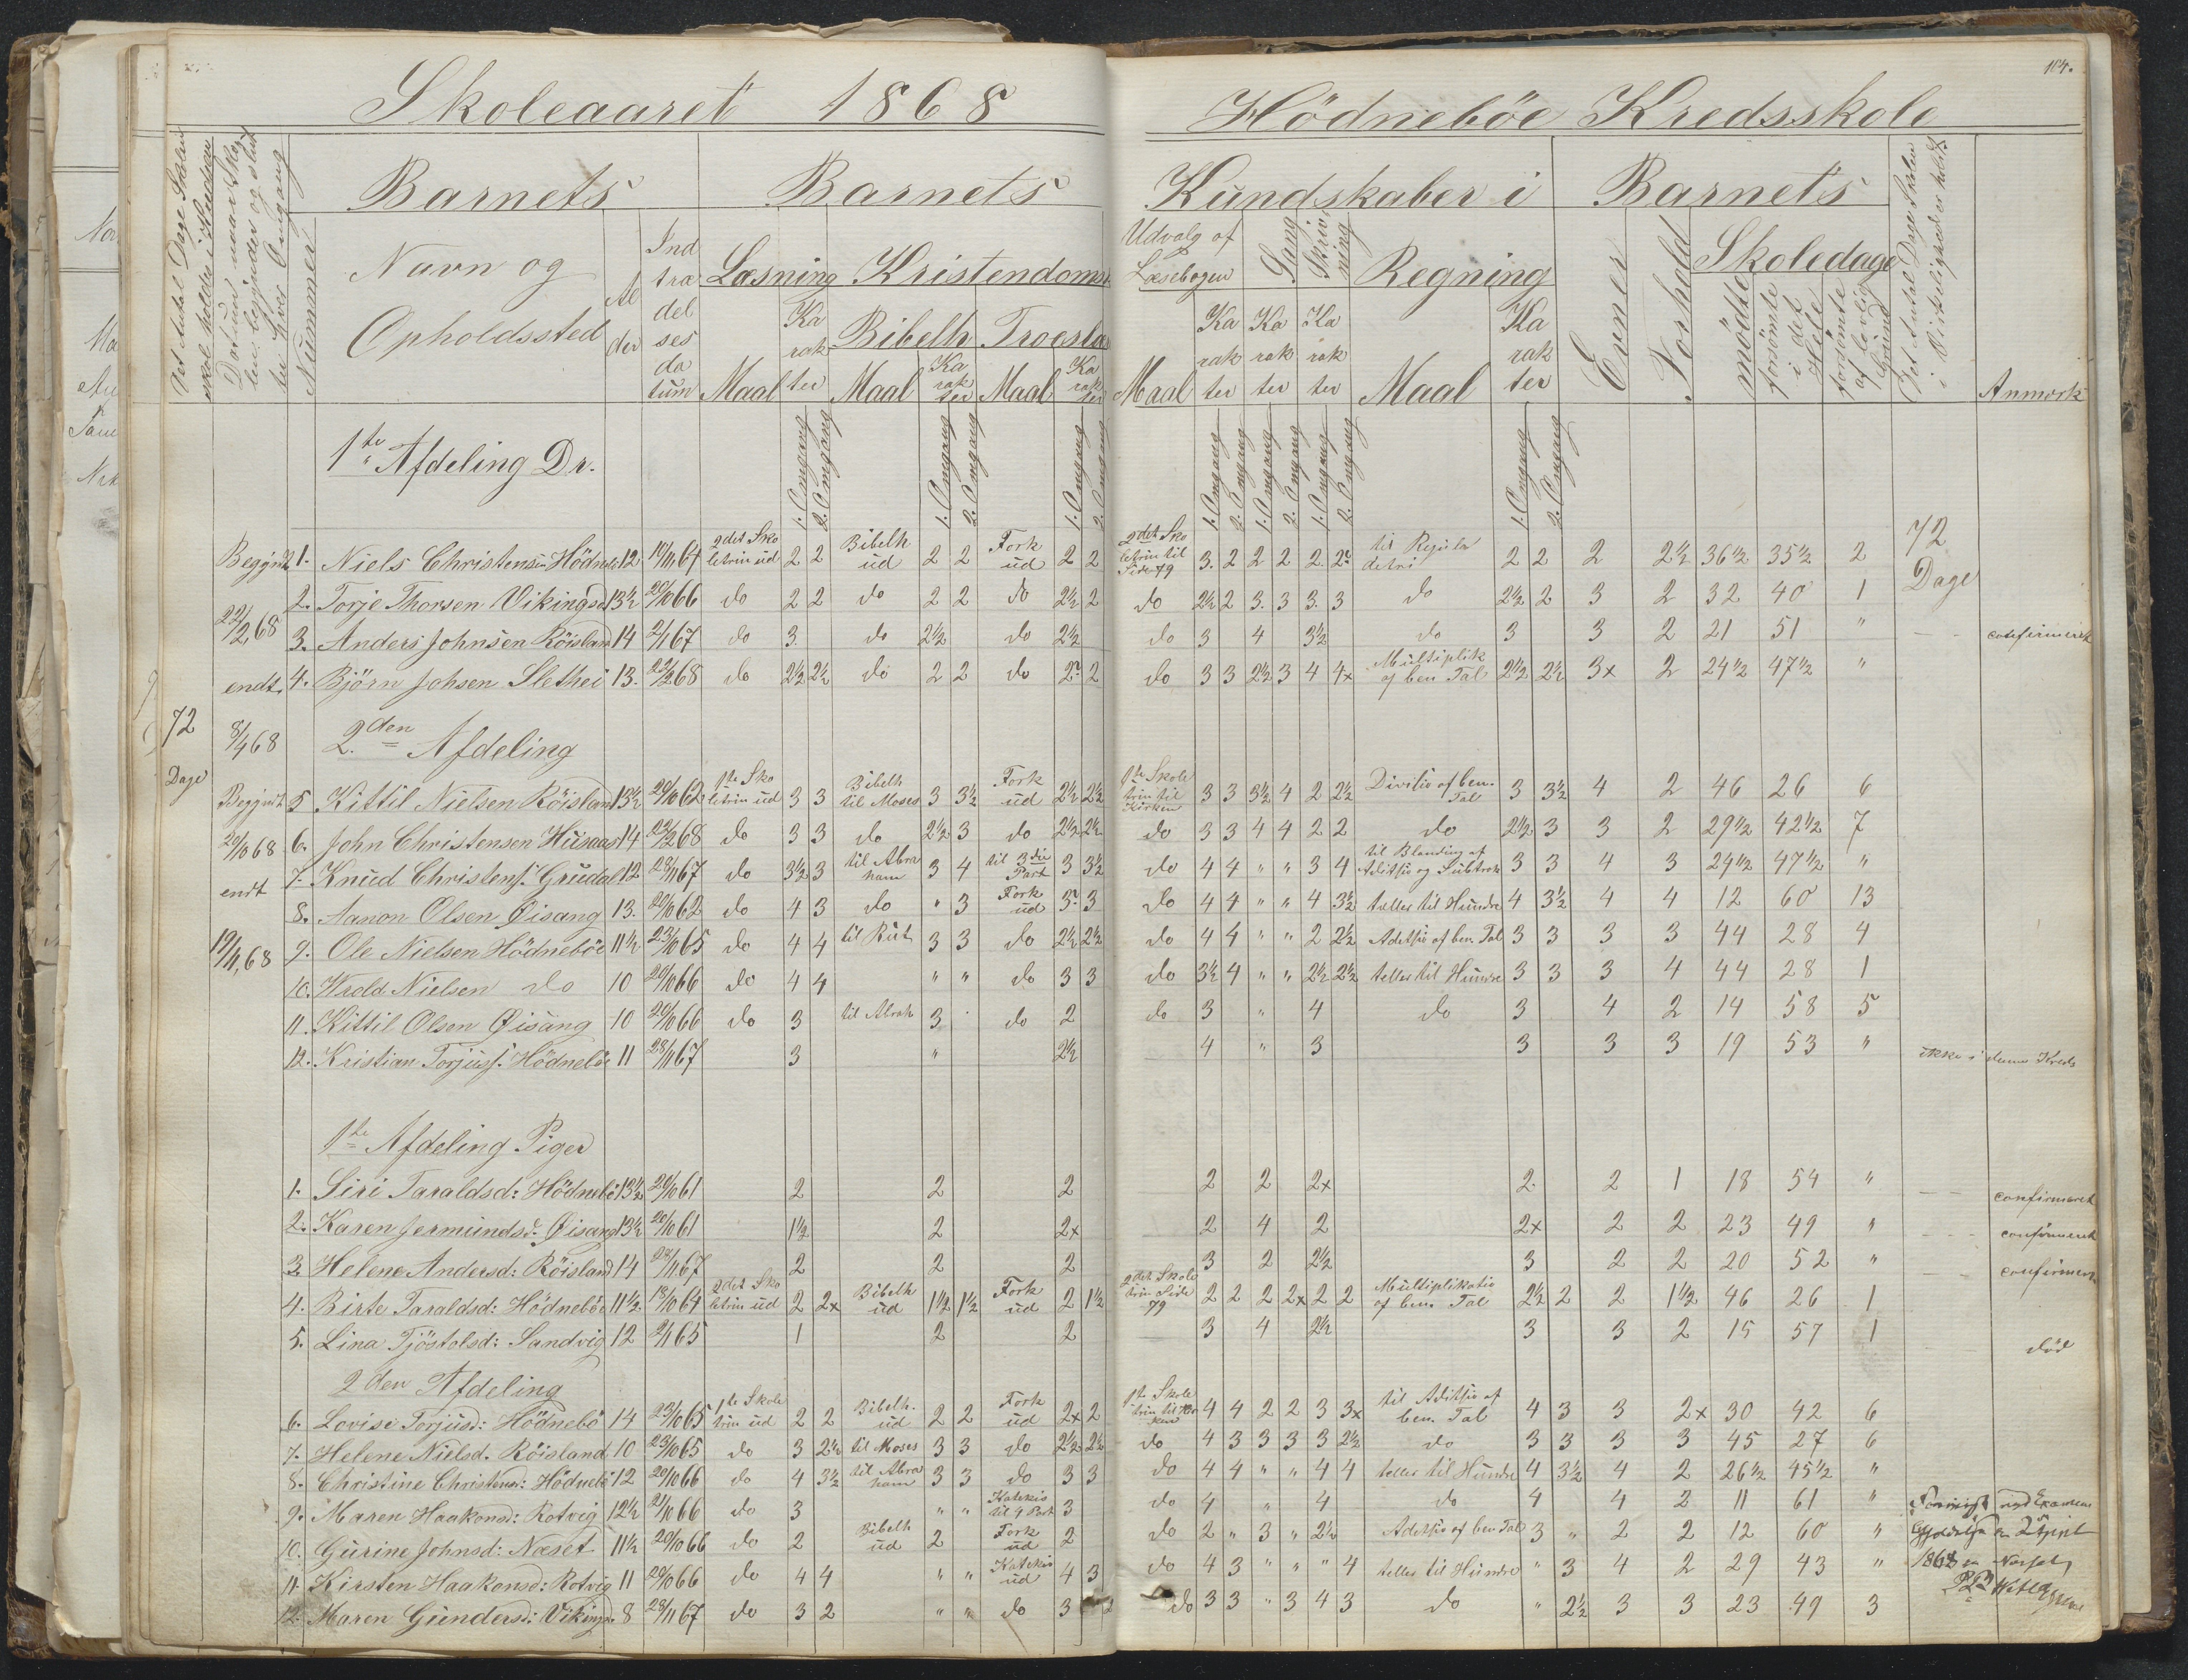 104.
Skoleaaret 1868 Hödneböe Kredsskole
Det Antal Dage Skolen skal holdes i Kredsen
Nummer
Barnets Barnets Kundskaber i Barnets
Navn og Opholdssted
Al der
Ind træ del ses da tum
Læsning Kristendoms
Bibelh Troeslæ
Maal Ka rak ter Maal Ka rak ter Maal Ka rak ter
Udvalg af Læsebogen
Sang Skriv ning Regning
Maal Ka rak ter Ka rak ter Ka rak ter Maal Ka rak ter
Evner Forhold
Skoledage
mödte forsömte i det Hele forsömte af lovlig Grund
Det Antal Dage Skolen i Virkeligheden er holdt
Anmærk
1. Omgang 2. Omgang 1. Omgang 2. Omgang 1. Omgang 2. Omgang 1. Omgang 2. Omgang 1. Omgang 2. Omgang 1. Omgang 2. Omgang 1. Omgang 2. Omgang
1te Afdeling Dr.
72 Dage
Begyndt 22/2 68 endt 8/4 68
Begyndt 20/10 68 endt 19/11 68
1. Niels Christensen Hödneb 12 10/11 64 2det Sko letrin ud 2 2 Bibelh ud 2 2 Fork ud 2 2 2det Sko letrin til Side 79 3. 2 2 2 2. 2 til Regula detri 2 2 2 2½ 36½ 35½ 2 72 Dage
2. Torje Thorsen Vikingsd 13½ 20/10 66 do 2 2 do 2 2 do 2½ 2 do 2½ 2 3. 3 3. 3 do 2½ 2 3 2 32 40 1
3. Anders Johnsen Röisland 14 2/11 67 do 3. do 2½ do 2½ do 3 4 3½ do 3 3 2 21 51 " confirmeret
4. Björn Johsen Slethei 13. 22/2 68 do 2½ 2½ do 2 2 do 2. 2 do 3 3 2½ 3 4 4x Multiplik af ben Tal 2½ 2½ 3x 2 24½ 47½ "
2den Afdeling
5 Kittil Nielsen Röisland 13½ 20/10 62 1te Sko letrin ud 3 3 Bibelh til Moses 3 3½ Fork ud 2½ 2½ 1te Skole trin til Kirken 3 3 3½ 4 2 2½ Divisio af ben. Tal 3 3½ 4 2 46 26 6
6. John Christensen Husaas 14 22/2 68 do 3 3 do 2½ 3 do 2½ 2½ do 3 3 4 4 2 2 do 2½ 3 3 2 29½ 42½ 7
7. Knud Christens. Grudal 12 28/11 67 do 3½ 3 til Abra ham 3 4 til 3die Part 3 3½ do 4 4 " " 3 4 til Blanding af Aditsio og Subtrak 3 3 4 3 24½ 47½ "
8. Aanon Olsen Öisang 13. 20/10 62 do 4 3 do " 3 Fork ud 3. 3 do 4 4 " " 4 3½ tæller til Hundre 4 3½ 4 4 12 60 13
9. Ole Nielsen Hödneböe 11½ 23/10 65 do 4 4 til Rut 3 3 do 2½ 2½ do 4 4 " " 2 2½ Aditsio af ben. Tal 3 3 3 3 44 28 4
10. Nielsen do 10 20/10 66 do 4 4 " " do 3 3 do 3½ 4 " " 2½ 2½ teller til Hundre 3 3 3 4 44 28 1
11. Kittil Olsen Öisang 10 20/10 66 do 3 til Abrah 3 do 2 do 3 " 4 do 3 4 2 14 58 5
12. Kristian Torjus. Hödneböe 11 28/11 67 3 " 2½ 4 " 3 3 3 3 19 53 " ikke i denne Kreds
1te Afdeling Piger
1. Siri Taraldsd: Hödneböe 13½ 20/10 61 2 2 2 2 2 2x 2. 2 1 18 54 " confirmeret
2. Karen Jermundsd: Öisang 13½ 20/10 61 1½ 2 2x 2 4 2 2x 2 2 23 49 " confirmeret
3. Helene Andersd: Röisland 14 28/11 67 2 2 2 3 2 2½ 3 2 2 20 52 " confirmeret
4. Birte Taraldsd: Hödneböe 11½ 18/10 64 2det Sko letrin ud 2 2x Bibelh ud 1½ 1½ Fork ud 2 1½ 2det Skole trin Side 79 2 2 2 2x 2 2 Multiplikatio af ben. Tal 2½ 2 2 1½ 46 26 1
5. Lina Tjöstolsd: Sandvig 12 2/11 65 1 2 2 3 4 2½ 3 3 2 15 57 1 död
2den Afdeling
6. Lovise Torjusd: Hödnebö 14 23/10 65 1te Skole trin ud 2 2 Bibelh. ud 2 2 Fork ud 2x 2 1te Skole trin til Kir ken 4 4 2 2 3 3x til Aditsio af ben. Tal 4 3 3 2x 30 42 6
7. Helene Nielsd. Röisland 10 23/10 65 do 3 2½ til Moses 3 3 do 2½ 2½ do 4 3 3 3 3 2½ do 3 3 3 3 45 27 6
8. Christine Christensd: Hödneb 12 20/10 66 do 4 3½ til Abra ham 3 3 do 3 3 do 4 4 " " 4 4 teller til Hundre 4 3½ 4 2 26½ 45½ "
9. Maren Haakonsd: Rotvig 12½ 21/10 66 do 3 " " Katekis til 4 Part 3 do 4 " 4 do 4 4 2 11 61 "
10. Gurine Johnsd: Næset 11½ 20/10 66 do 2 Bibelh ud 2 Fork ud 2 do 2 " 3 " 2½ Aditsio af ben Tal 3 " 2 2 12 60 "
11. Kirsten Haakonsd: Rotvig 11 20/10 66 do 4 4 " " Katekis ud 4 3 do 4 3 " " " 4 teller til Hundre " 3 4 2 29 43 "
12. Maren Gundersd: Vikingsd 8 28/11 67 do 3 2 " " do 3 do 3 3 " 3 4 3 do " 2½ 3 3 23 49 3
ved Examen
1868